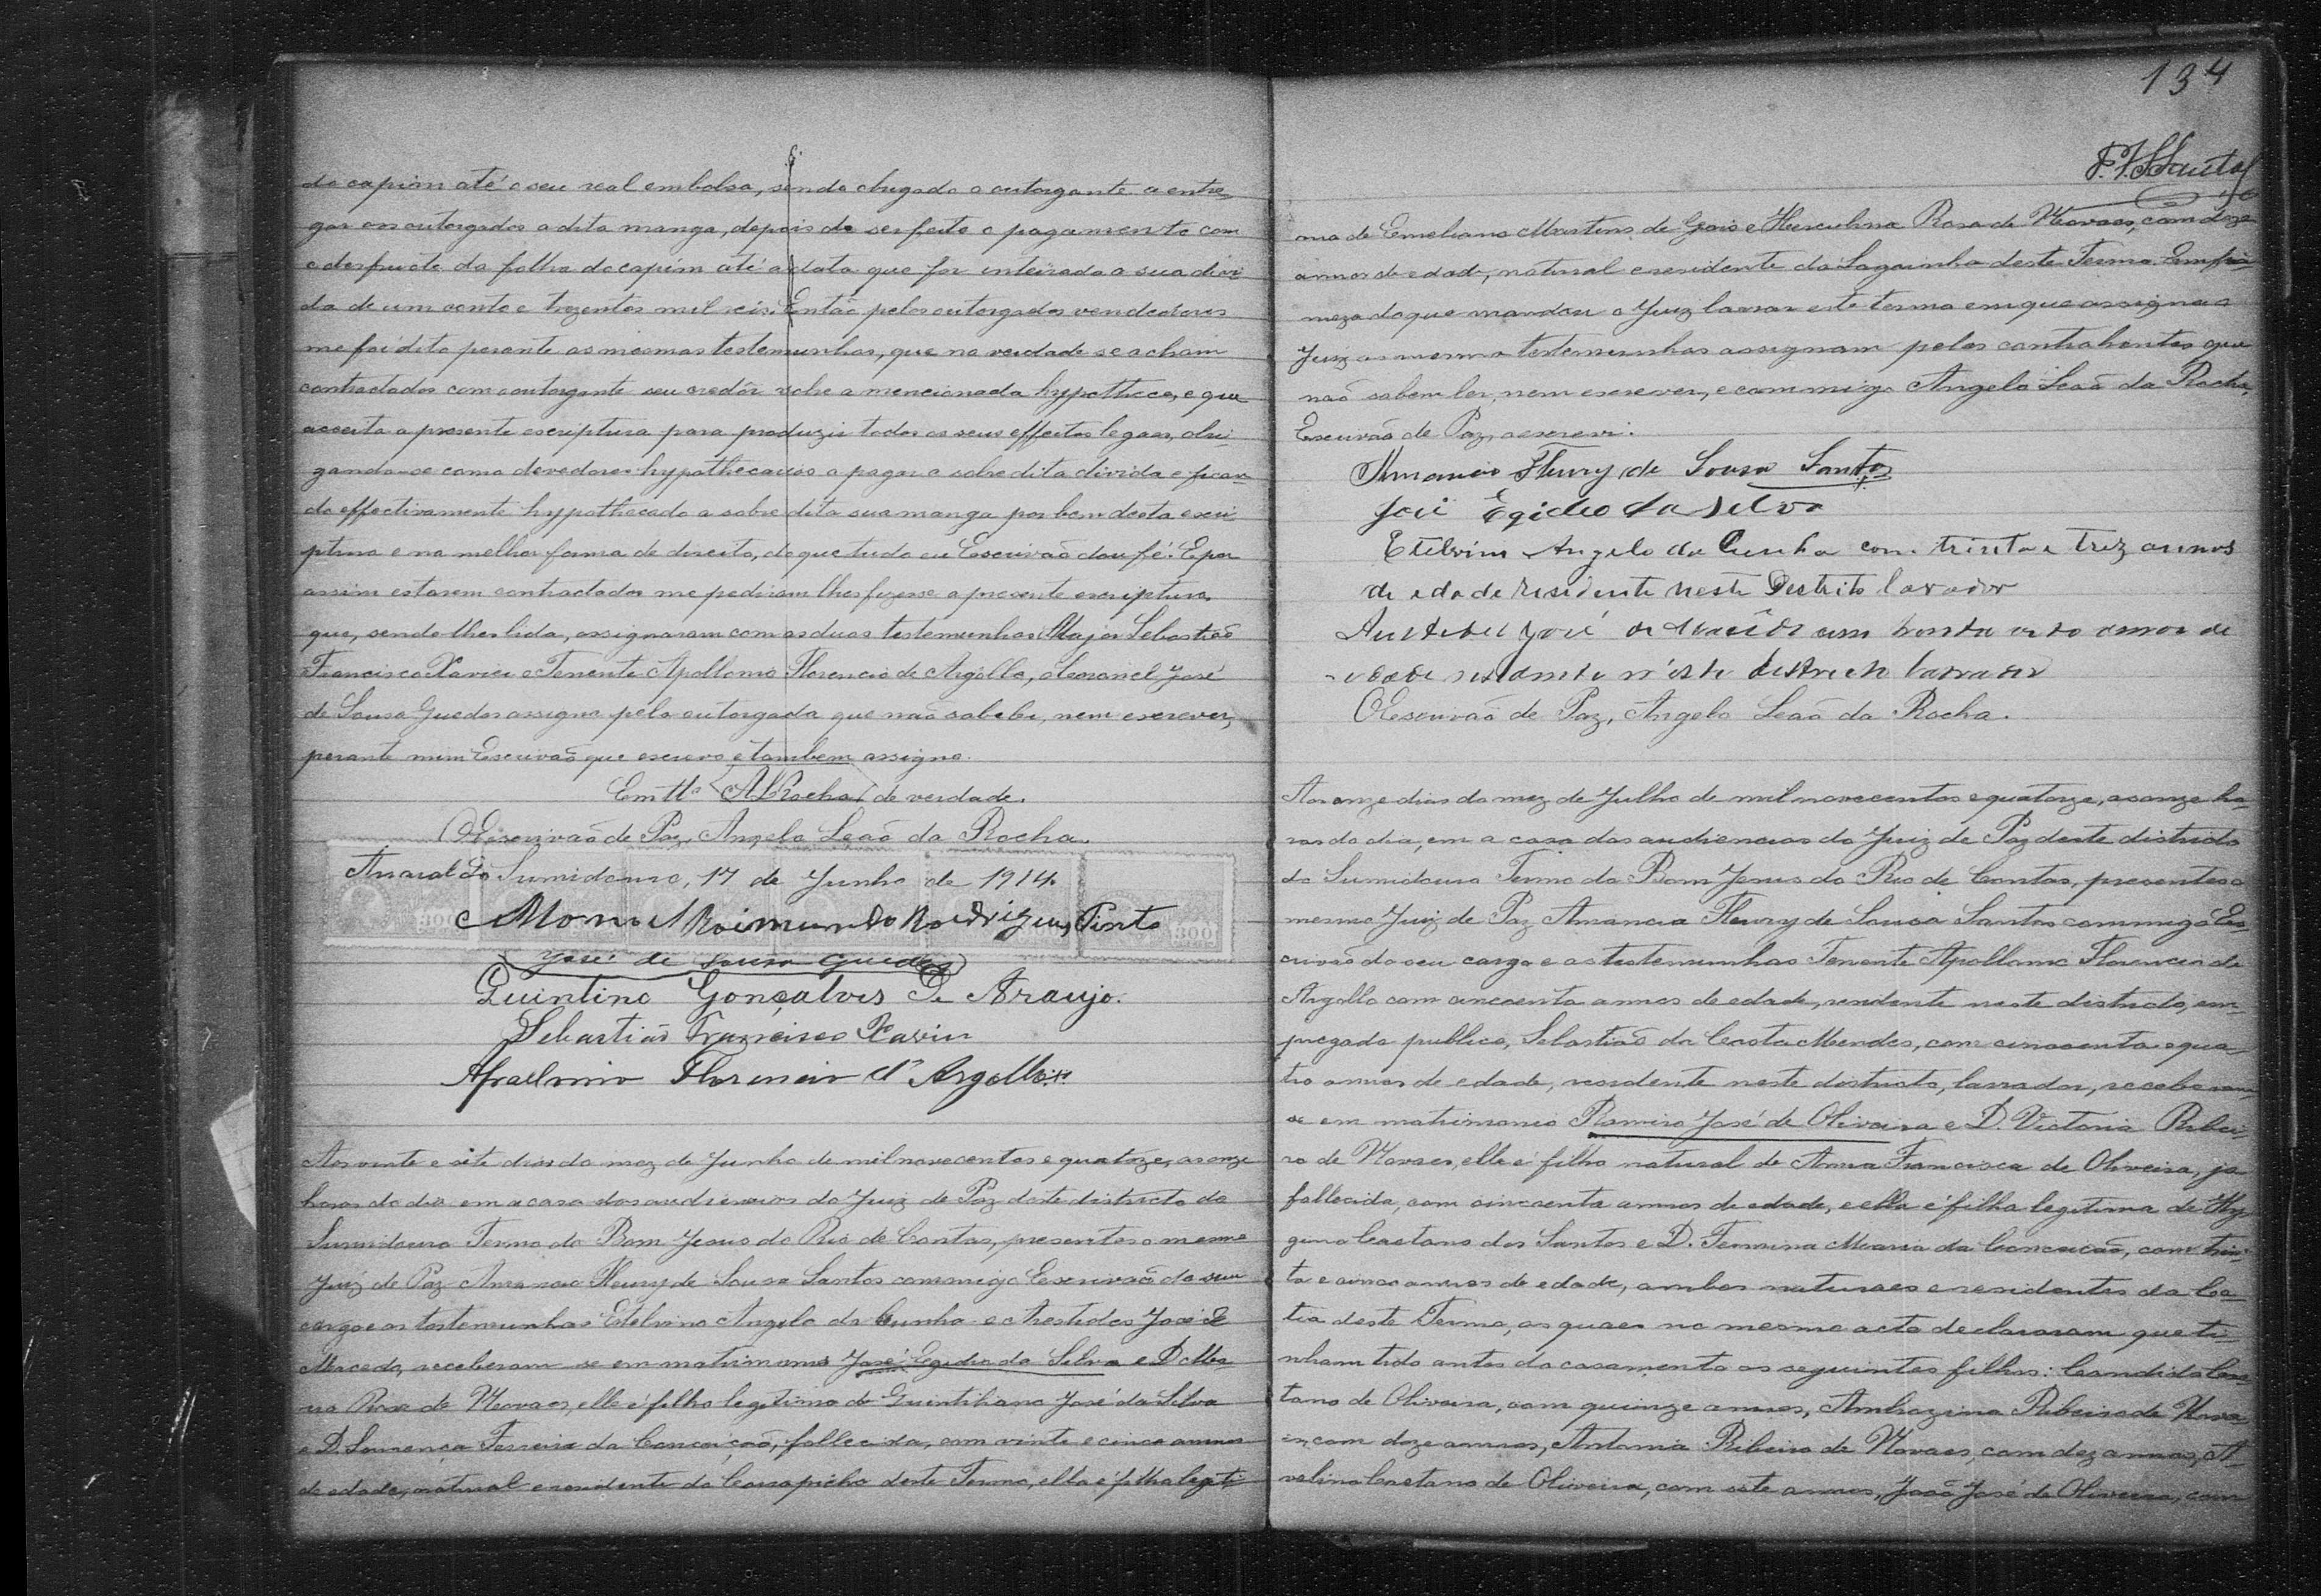 do capim até o seu real embolso, sendo obrigado o outorgante a entre-
gar os outorgados a dita manga, depois de ser feito o pagamento com
o desfructe da folha do capim até a data que for inteirada a sua divi-
da de um conto e trezentos mil reis. Então pelos outorgados vendedores
me foi dito perante as mesmas testemunhas, que na verdade se acham
contractados com o outorgante seu credôr sobre a mencionada hypotheca, e que
acceita a presente escriptura para produzir todos os seus effeitos legaes, obri-
gando-se como devedores hypothecarios a pagar a sobredita divida e fican-
do effectivamente hypothecada a sobredita sua manga por bem desta escri-
ptura e na melhor forma de direito, do que tudo eu Escrivão dou fé. E por
assim estarem contractados me pediram lhes fizesse a presente escriptura,
que, sendo-lhes lida, assignaram com as duas testemunhas Major Sebastião
Francisco Xavier e Tenente Apollonio Florencio de Argollo, José
de Sousa Guedes assigna pela outorgada que não sabe ler, nem escrever,
perante mim Escrivão que escrevo e tambem assigno.
Em tt.º ALRocha de verdade.
O Escrivão de Paz, Angelo Leaõ da Rocha.
Arraial do Sumidouro, 17 de Junho de 1914.
300 300
Manoel Raimundo Rodrigues Pinto
José de Sousa Guedes
Quintino Gonçalves De Araujo.
Sebastião Francisco Xavier
Apollonio Florencio d'Argollo
Aos vinte e sete dias do mez de Junho de mil novecentos e quatorze, as onze
horas do dia em a casa das audiencias do Juiz de Paz deste districto do
Sumidouro Termo do Bom Jesus do Rio de Contas, presentes o mesmo
Juiz de Paz Amancio Fleury de Sousa Santos commigo Escrivaõ do seu
cargo e as testemunhas Etelvino Angelo da Cunha e Arestides José de
Macedo, receberam-se em matrimonio José Egidio da Silva e D. Ma-
ria Rosa de Novaes, elle é filho legitimo de Quintiliano José da Silva
e D. Lourença Ferreira da Conceiçaõ, fallecida, com vinte e cinco annos
de edade, natural e residente do deste Termo, ella é filha legiti-
134
F. Santos
ma de Emeliano Martins de Gois e Herculina Rosa de Novaes, com doze
annos de edade, natural e residente da Lagoinha deste Termo. Em fir-
meza do que mandou o Juiz lavrar este termo em que assigna o
Juiz as mesmas testemunhas assignam pelos contrahentes que
naõ sabem ler, nem escrever, e commigo Angelo Leaõ da Rocha,
Escrivaõ de Paz, o escrevi.
Amancio Fleury de Sousa Santos
José Egideo da Silva
Etelvino Angelo da Cunha com trinta e trez annos
de edade residente neste Destrito lavrador
José de Macêdo com trinta annos de
edade residente n'este destricto lavrador
O Escrivaõ de Paz, Angelo Leaõ da Rocha.
Aos onze dias do mez de Julho de mil novecentos e quatorze, as onze ho-
ras do dia, em a casa das audiencias do Juiz de Paz deste districto
do Sumidouro Termo do Bom Jesus do Rio de Contas, presentes o
mesmo Juiz de Paz Amancio Fleury de Sousa Santos commigo Es-
crivaõ do seu cargo e as testemunhas Tenente Apollonio Florencio de
Argollo com cincoenta annos de edade, residente neste districto, em-
pregado publico, Sebastiaõ da Costa Mendes, com cincoenta e qua-
tro annos de edade, residente neste districto, lavrador, receberam-
se em matrimonio Ramiro José de Oliveira e D. Victoria Ribei-
ro de Novaes, elle é filho natural de Anna Francisca de Oliveira, ja
fallecida, com cincoenta annos de edade, e ella é filha legitima de Hy-
gino Caetano dos Santos e D. Firmina Maria da Conceicaõ, com trin-
ta e cinco annos de edade, ambos naturaes e residentes da Coa-
tia deste Termo, os quaes no mesmo acto declararam que ti-
nham tido antes do casamento os seguintes filhos: Candido Cae-
tano de Oliveira, com quinze annos, Ambrozina Ribeiro de Nova-
es, com doze annos, Antonia Ribeiro de Novaes, com dez annos, A-
velino Caetano de Oliveira, com sete annos, Joaõ José de Oliveira, com